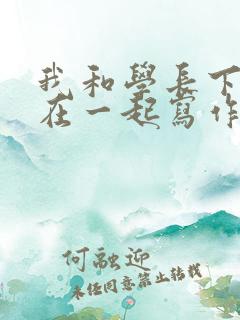 我和學長下
在一起寫作
何融迎
未经同意禁止转载